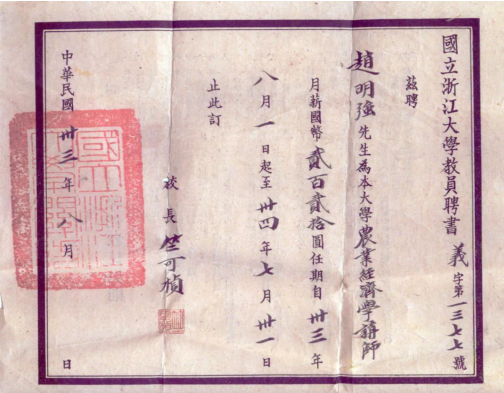 國立浙江大學教員聘書 義字第一三七七號
茲聘
趙明強先生為本大學農業經濟學講師
月薪國幣貳百貳拾圓任期自卅三年
八月一日起至卅四年七月卅一日
止此訂
校長竺可楨
中華民國卅三年八月 日